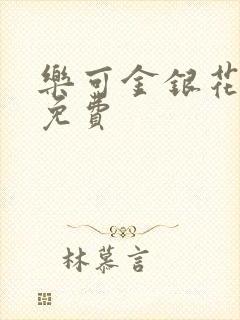 樂可金銀花
免費
林慕言